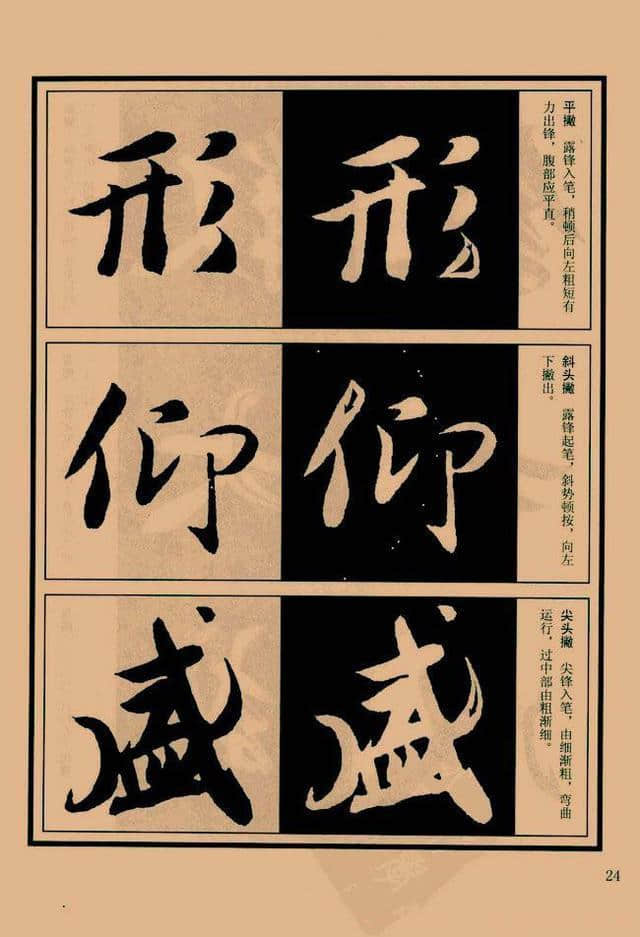 平撇　露锋入笔，稍顿后向左粗短有
力出锋，腹部应平直。
形 形
斜头撇　露锋起笔，斜势顿按，向左
下撇出。
仰 仰
尖头撇　尖锋入笔，由细渐粗，弯曲
运行，过中部由粗渐细。
盛 盛
24